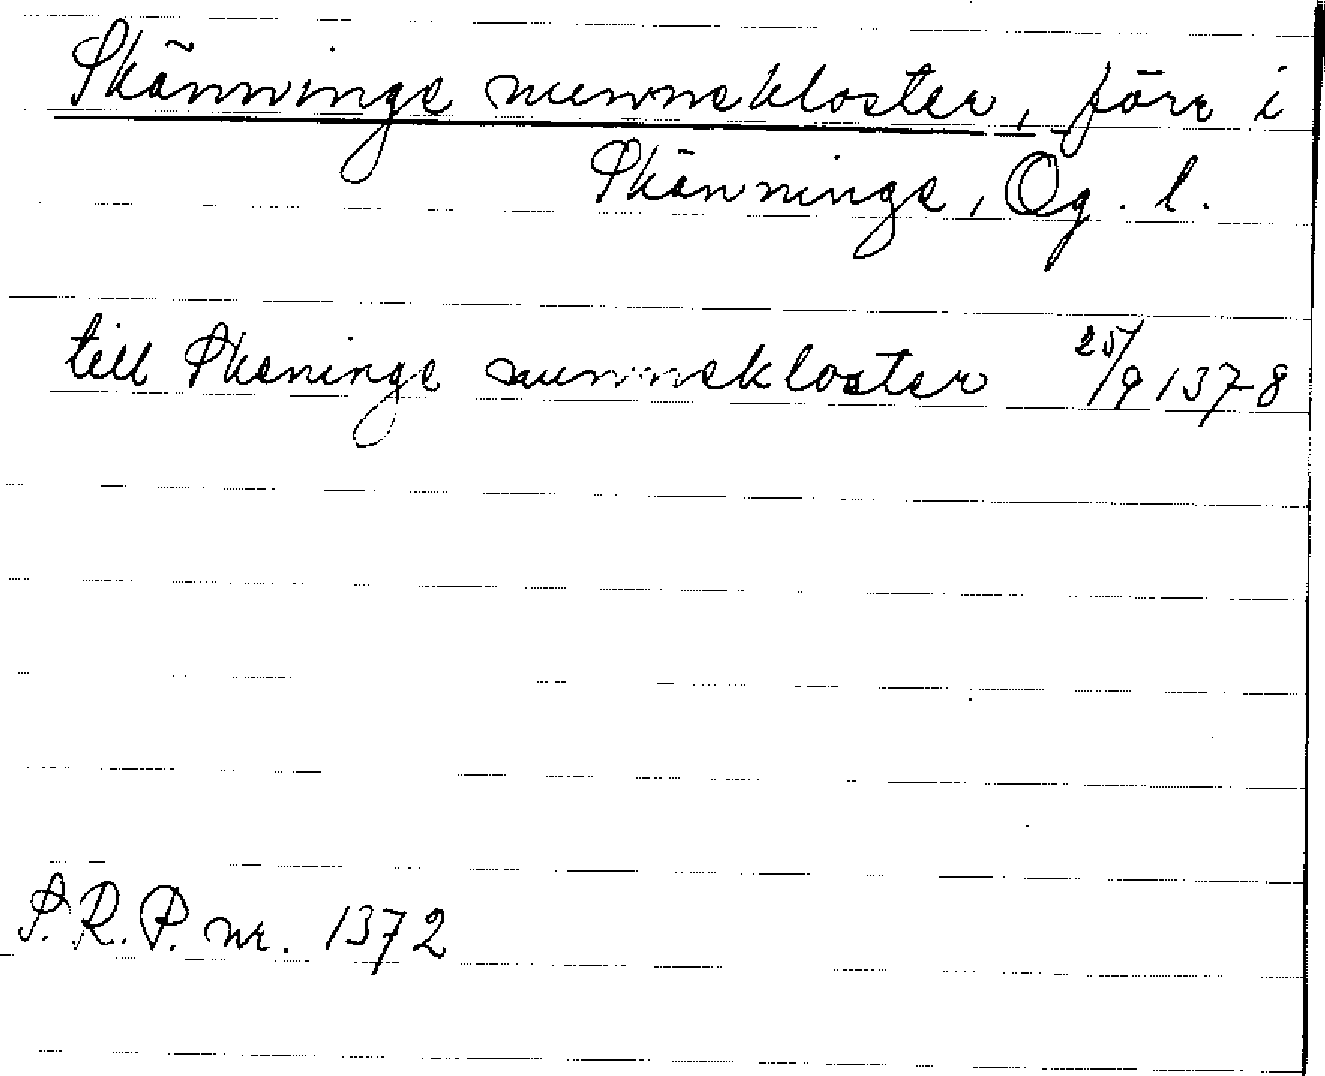 Skänninge nunnekloster, förr i
Skänninge, Ög. l.
till Skeninge nunnekloster 25/9 1378
S.R.P. nr. 1372